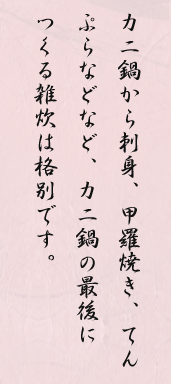 カニ鍋から刺身、甲羅焼き、てん
ぷらなどなど、カニ鍋の最後に
つくる雑炊は格別です。